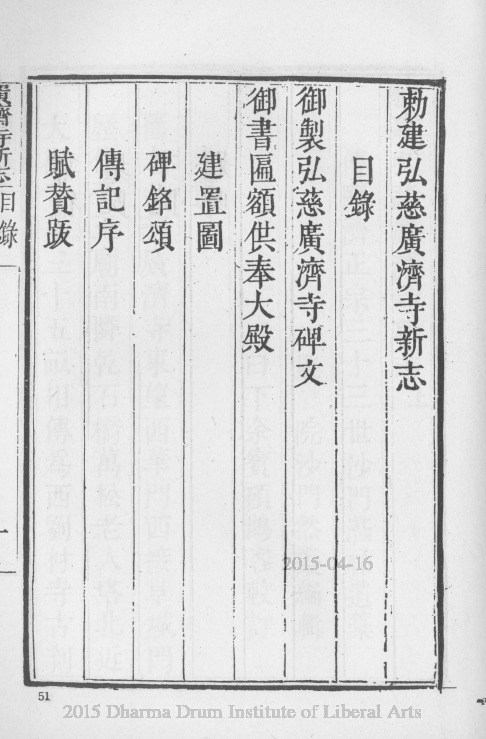 勅建弘慈廣濟寺新志
目錄
御製弘慈廣濟寺碑文
御書匾額供奉大殿
建置圖
碑銘頌
傳記序
賦贊跋
廣濟寺新志 目錄
一
2015-04-16
51
2015 Dharma Drum Institute of Liberal Arts